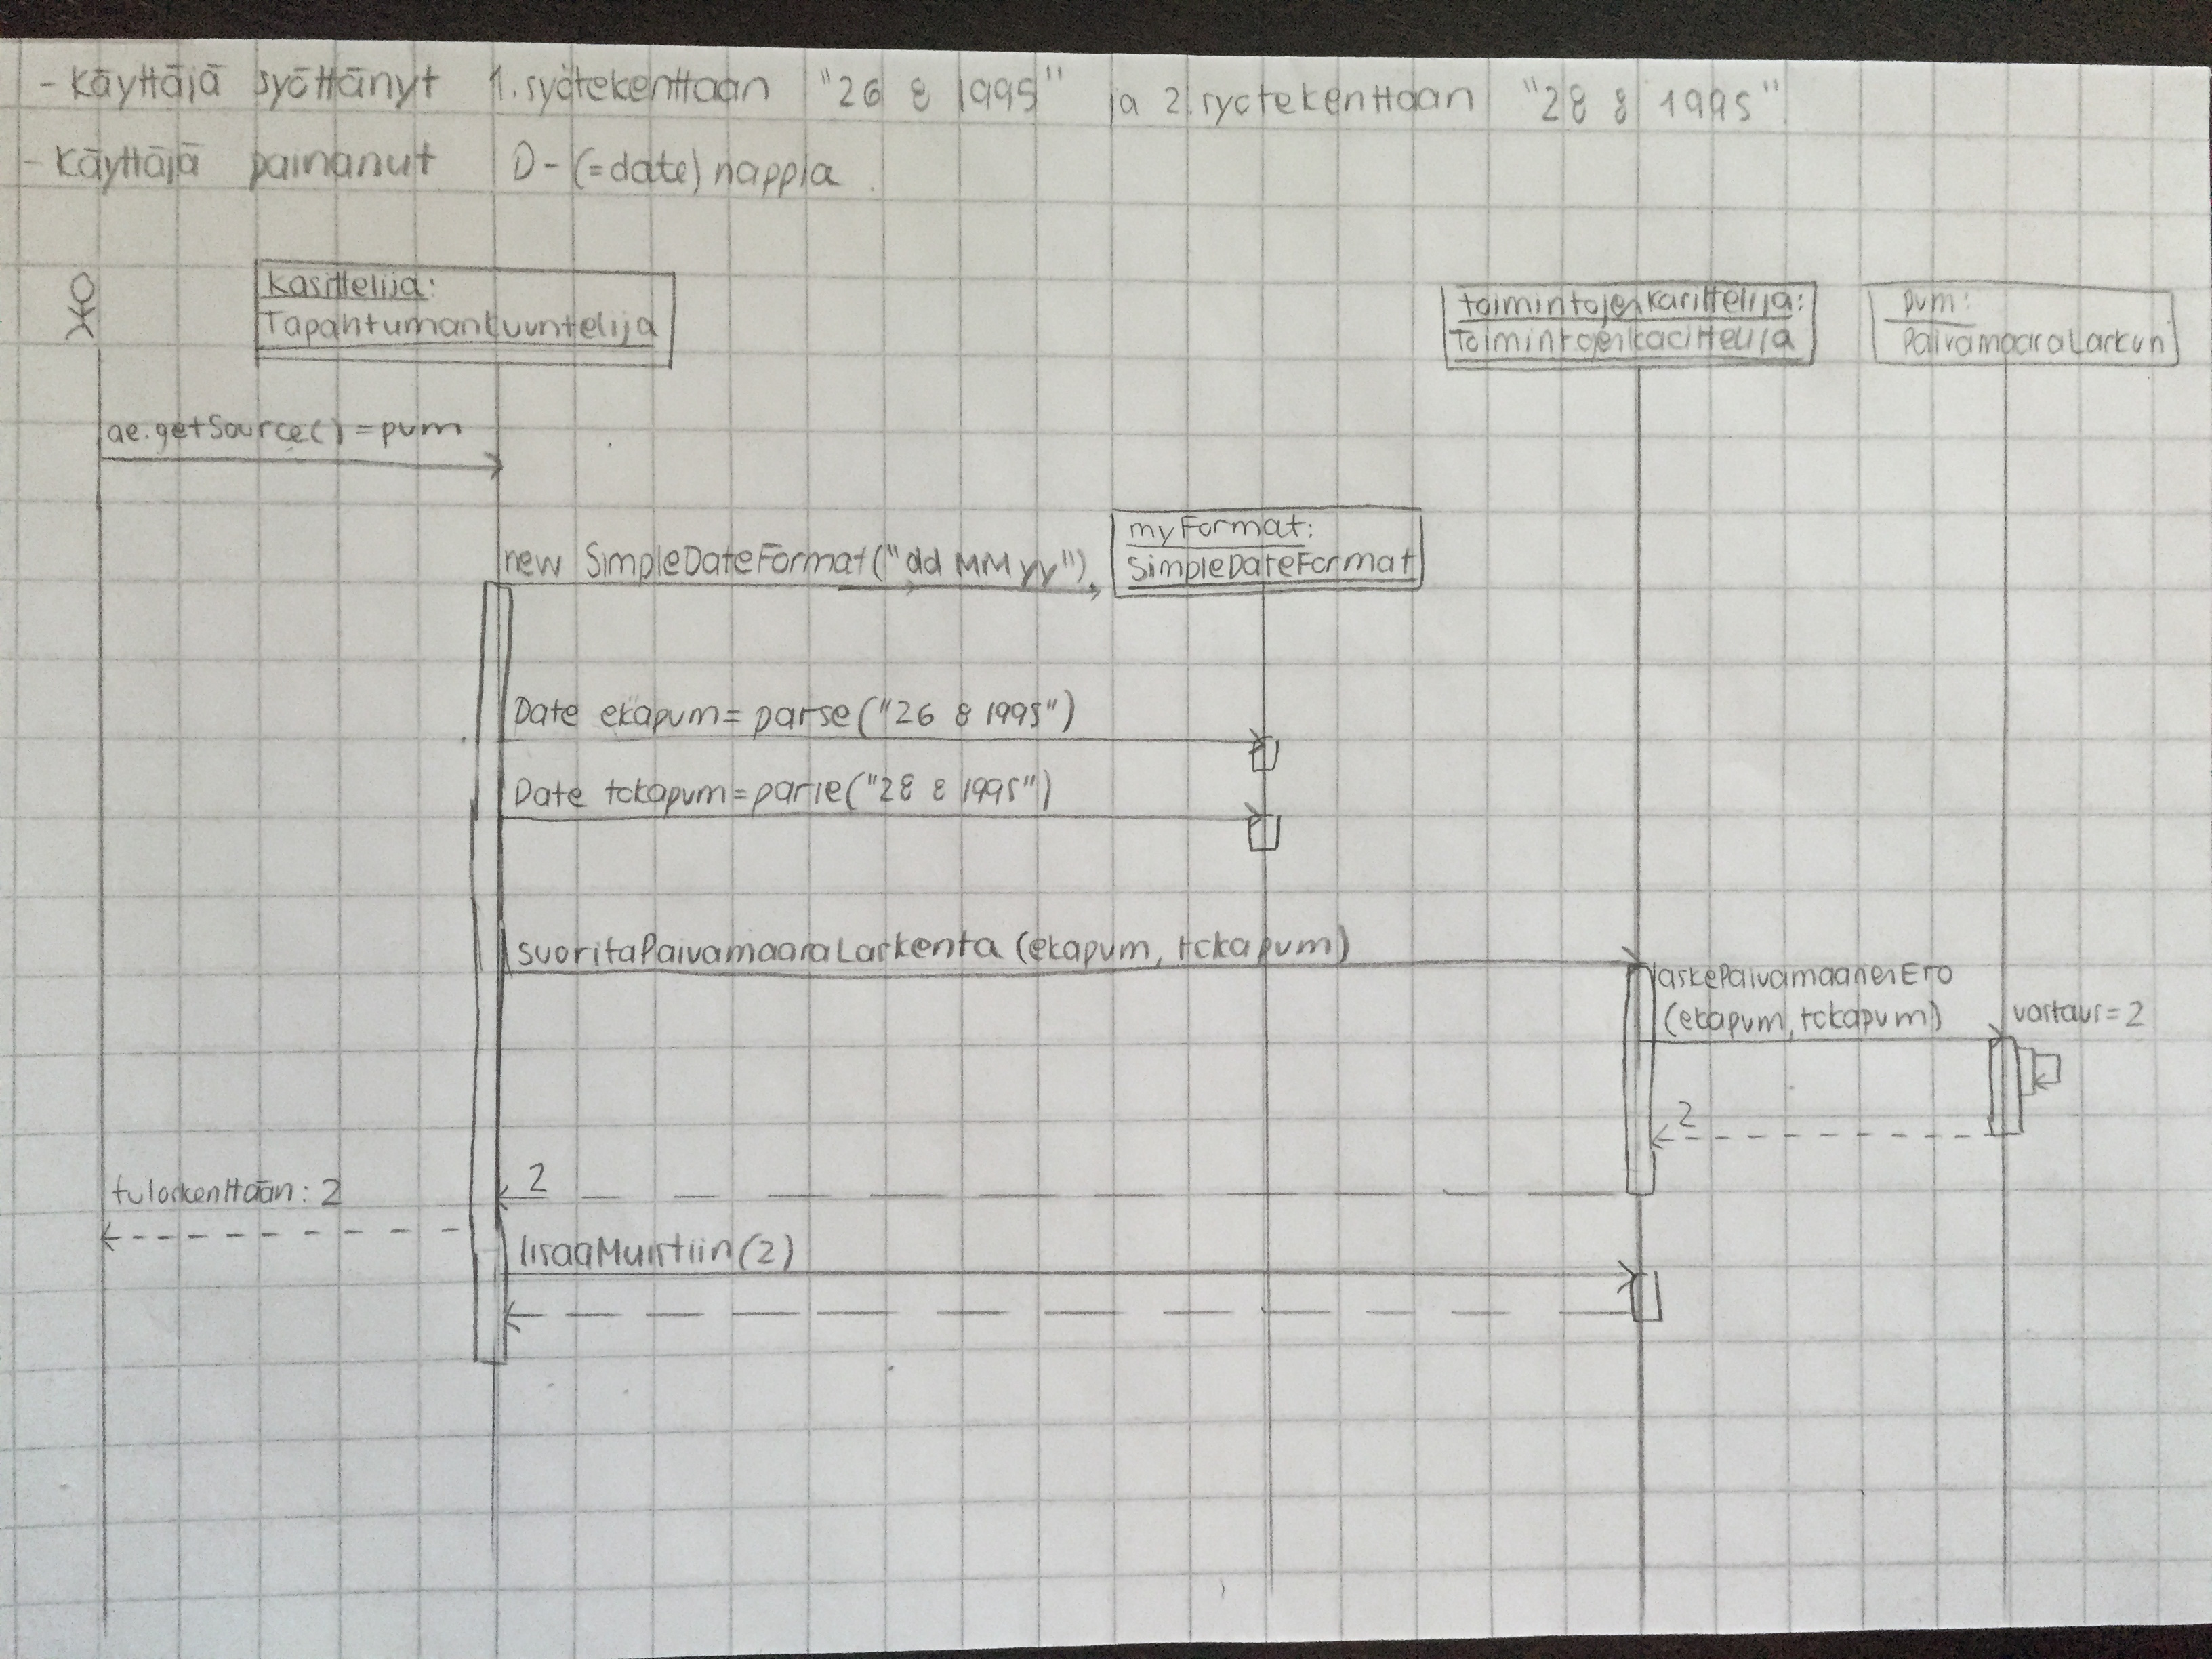 - Käyttäjä syöttänyt 1. syötekenttaan "26 8 1995" ja 2. syotekenttaan "28 8 1995".
- Käyttäjä painanut D- (=date) nappia.
kasittelija:
Tapahtumankuuntelija
toimintojenkasittelija:
Toimintojenkasittelija
pvm:
PaivamaaraLaskuri
ae.getSource() = pvm
new SimpleDateFormat("dd MM yy")
myFormat:
SimpleDateFormat
Date ekapvm = parse("26 8 1995")
Date tokapvm = parse("28 8 1995")
suoritaPaivamaaraLaskenta (ekapvm, tokapvm)
laskePaivamaarienEro
(ekapvm, tokapvm)
vastaus = 2
2
2
tuloskenttaan: 2
lisaaMuistiin(2)